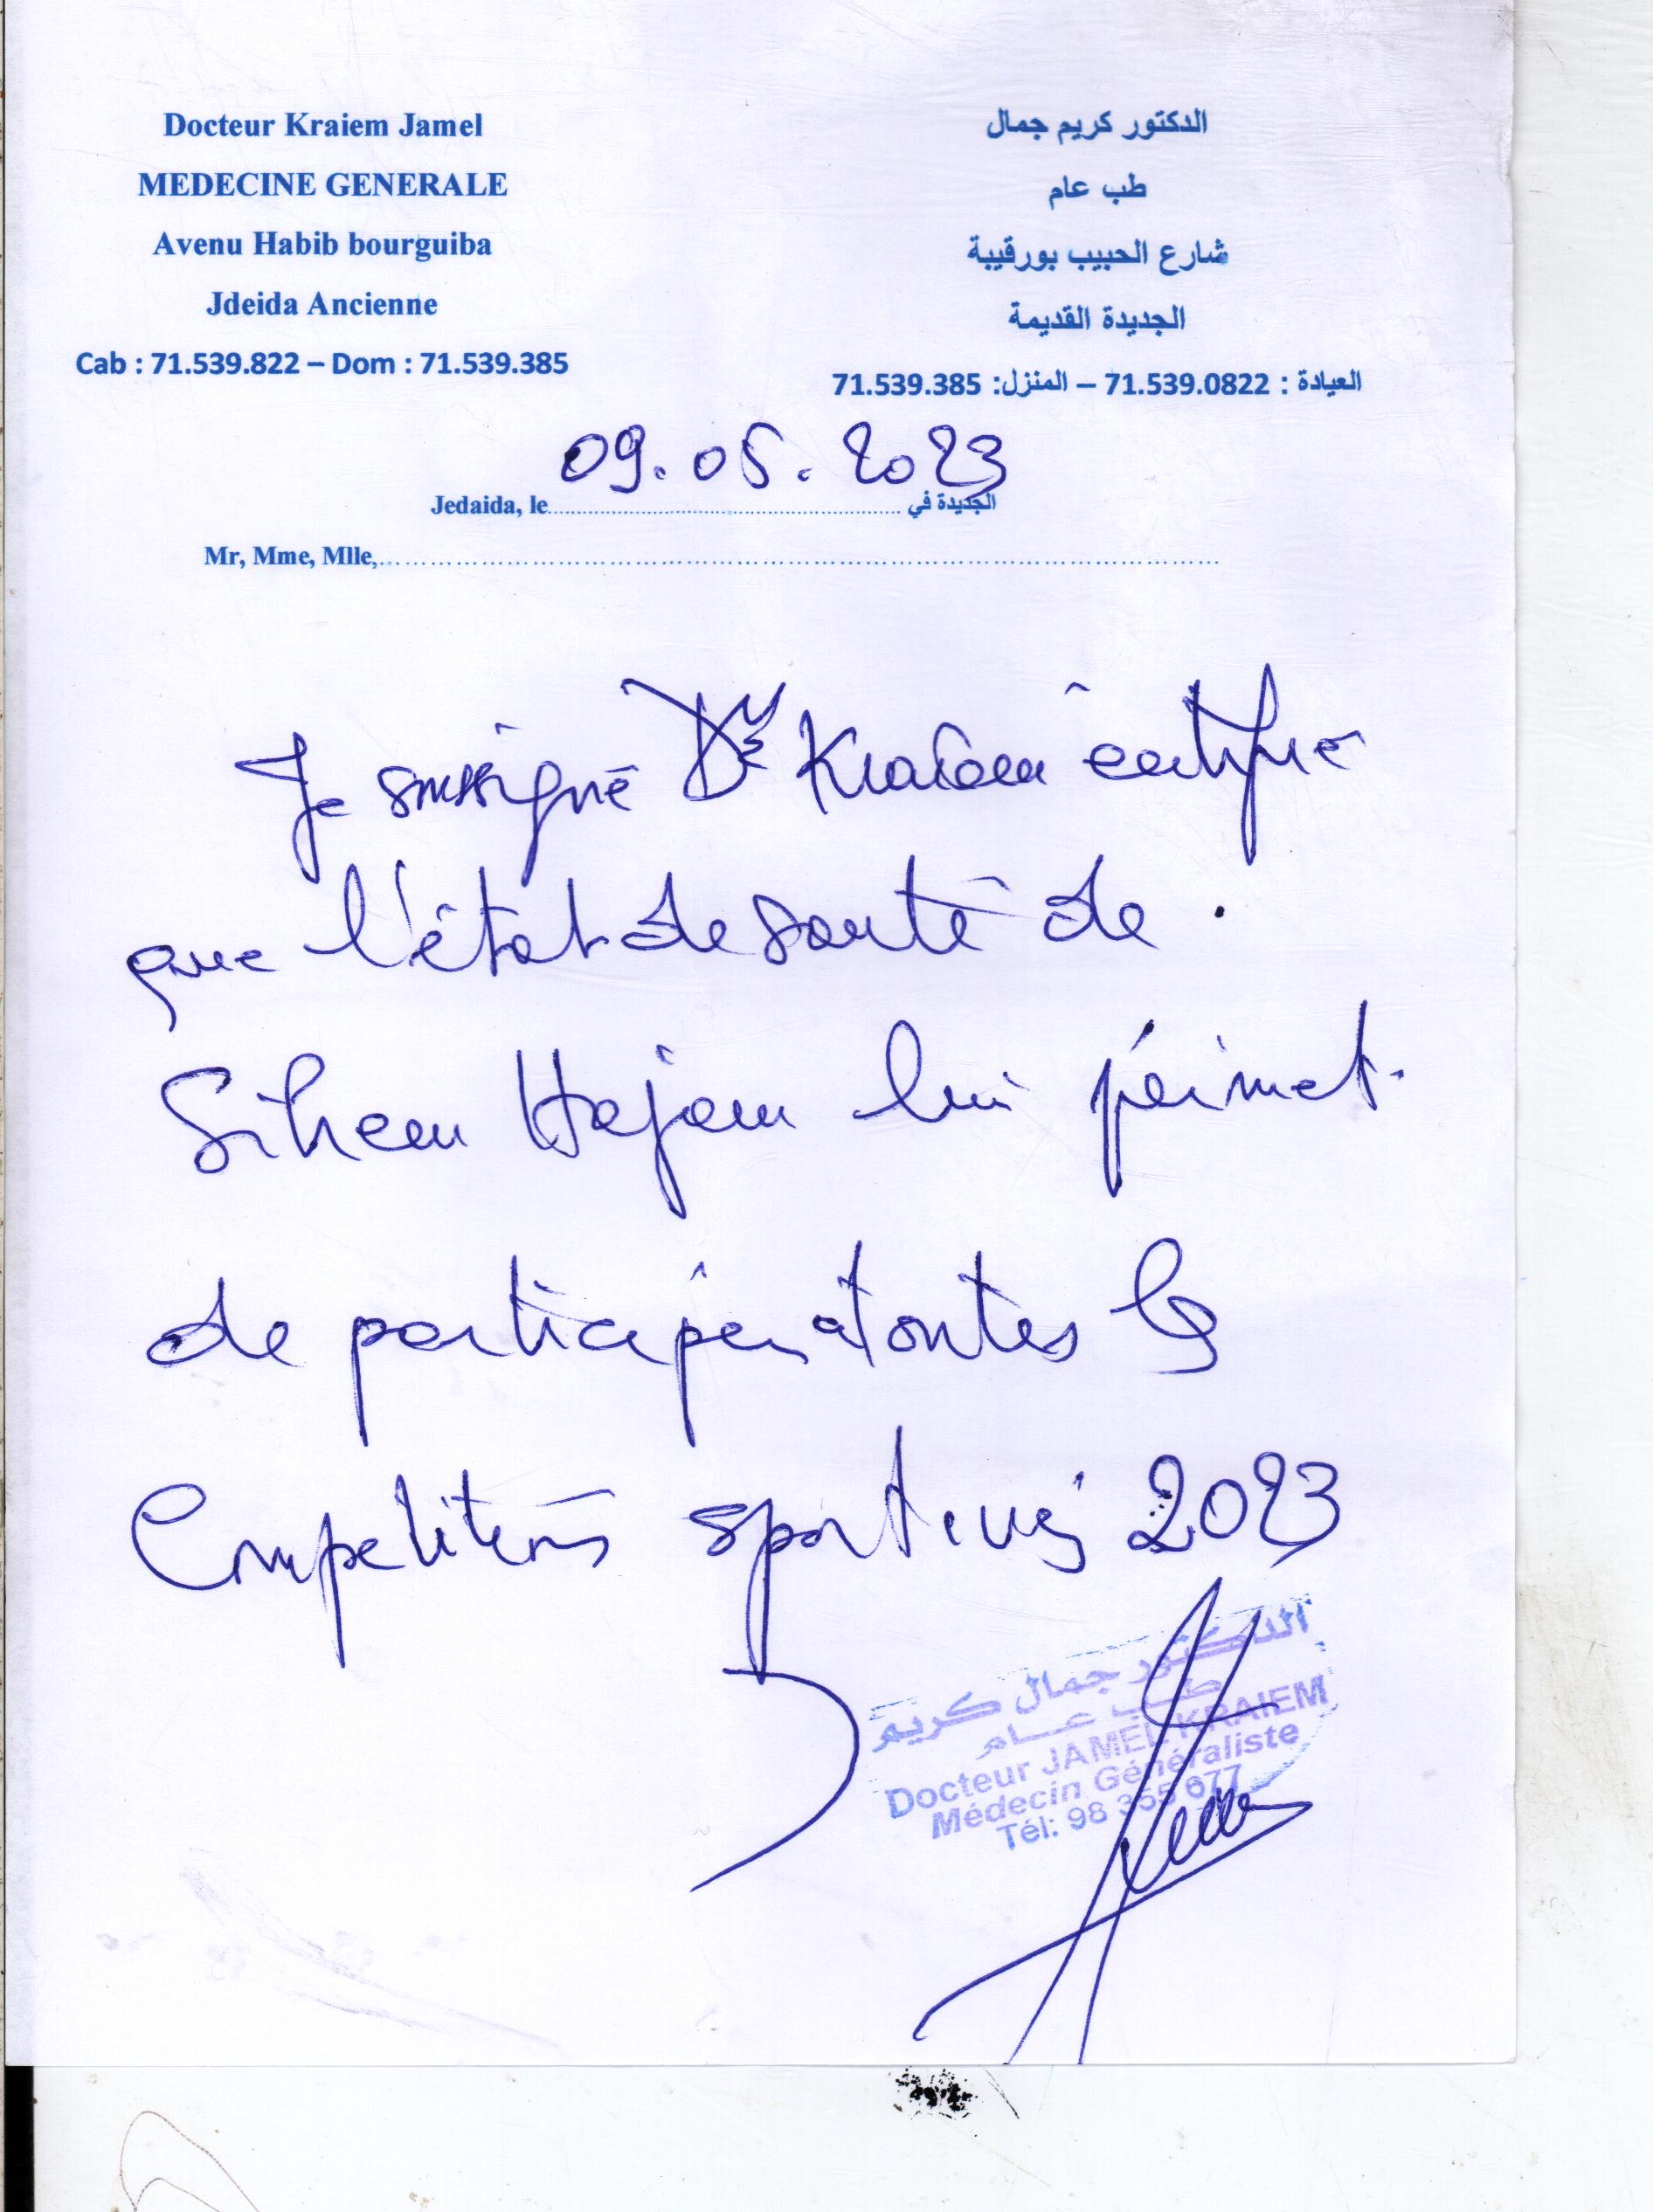 Docteur Kraiem Jamel
MEDECINE GENERALE
Avenu Habib bourguiba
Jdeida Ancienne
Cab : 71.539.822 – Dom : 71.539.385
الدكتور كريم جمال
طب عام
شارع الحبيب بورقيبة
الجديدة القديمة
العيادة : 71.539.0822 – المنزل: 71.539.385
09.05.2023
Jedaida, le........................ الجديدة في
Mr, Mme, Mlle,........................
Je soussigné Dr Kraiem certifie
que l'état de santé de .
Sihem Hajem lui permet.
de participer à toutes les
Competitions sportives 2023
الدكتور جمال كريم
طب عام
Docteur JAMEL KRAIEM
Médecin Généraliste
Tél: 98 355 677